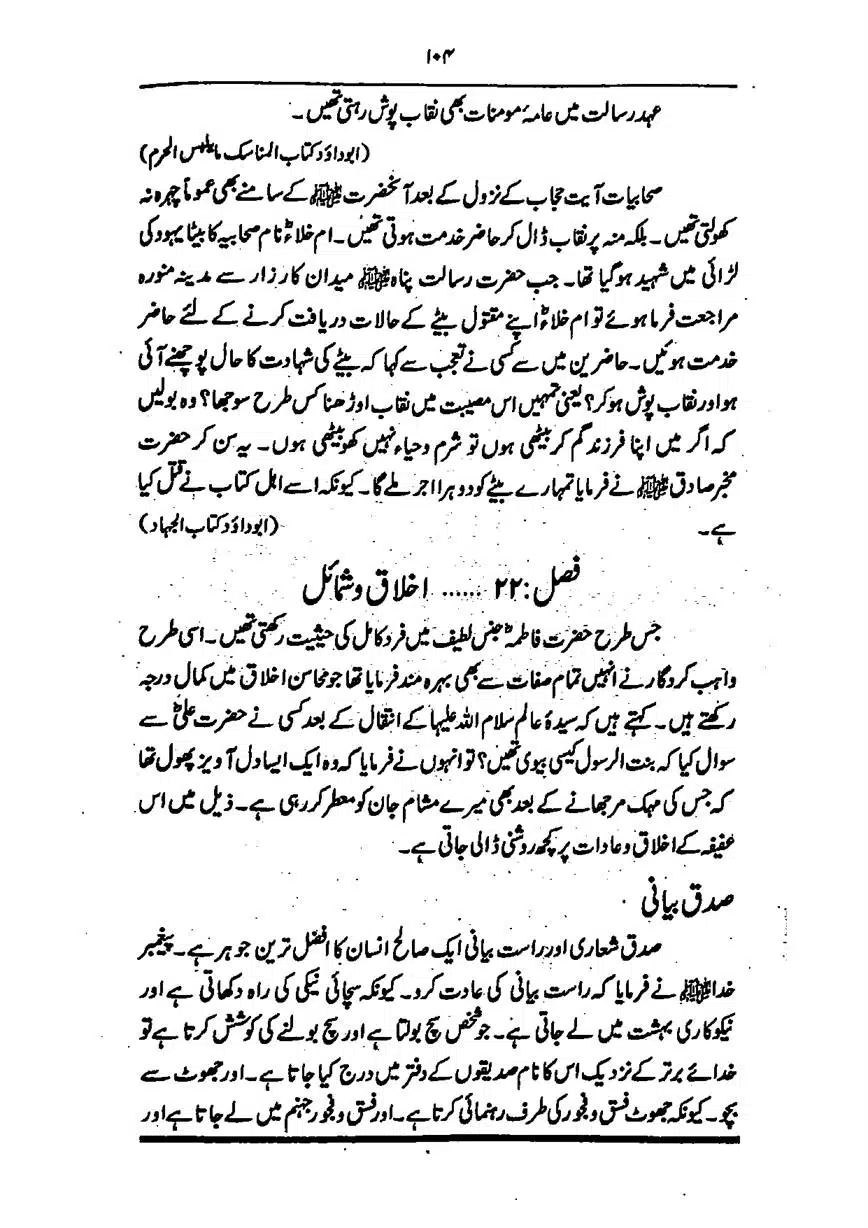 ۱۰۴
عہد رسالت میں عامۂ مومنات بھی نقاب پوش رہتی تھیں۔
(ابوداؤد کتاب المناسک مایلبس المحرم)
صحابیات آیت حجاب کے نزول کے بعد آنحضرت ﷺ کے سامنے بھی عموماً چہرہ نہ
کھولتی تھیں۔ بلکہ منہ پر نقاب ڈال کر حاضر خدمت ہوتی تھیں۔ ام خلادؓ نام صحابیہ کا بیٹا یہود کی
لڑائی میں شہید ہوگیا تھا۔ جب حضرت رسالت پناہ ﷺ میدان کارزار سے مدینہ منورہ
مراجعت فرما ہوئے تو ام خلادؓ اپنے مقتول بیٹے کے حالات دریافت کرنے کے لئے حاضر
خدمت ہوئیں۔ حاضرین میں سے کسی نے تعجب سے کہا کہ بیٹے کی شہادت کا حال پوچھنے آئی
ہو اور نقاب پوش ہوکر؟ یعنی تمہیں اس مصیبت میں نقاب اوڑھنا کس طرح سوجھا؟ وہ بولیں
کہ اگر میں اپنا فرزند گم کر بیٹھی ہوں تو شرم وحیاء نہیں کھو بیٹھی ہوں۔ یہ سن کر حضرت
مخبر صادق ﷺ نے فرمایا تمہارے بیٹے کو دوہرا اجر ملے گا۔ کیونکہ اسے اہل کتاب نے قتل کیا
ہے۔ (ابوداؤد کتاب الجہاد)
فصل: ۲۲ ...... اخلاق و شمائل
جس طرح حضرت فاطمہؓ جنس لطیف میں فرد کامل کی حیثیت رکھتی تھیں۔ اسی طرح
واہب کردگار نے انہیں تمام صفات سے بھی بہرہ مند فرمایا تھا جو محاسن اخلاق میں کمال درجہ
رکھتے ہیں۔ کہتے ہیں کہ سیدۂ عالم سلام اللہ علیہا کے انتقال کے بعد کسی نے حضرت علیؓ سے
سوال کیا کہ بنت الرسول کیسی بیوی تھیں؟ تو انہوں نے فرمایا کہ وہ ایک ایسا دل آویز پھول تھا
کہ جس کی مہک مرجھانے کے بعد بھی میرے مشام جان کو معطر کر رہی ہے۔ ذیل میں اس
عفیفہ کے اخلاق وعادات پر کچھ روشنی ڈالی جاتی ہے۔
صدق بیانی
صدق شعاری اور راست بیانی ایک صالح انسان کا افضل ترین جوہر ہے۔ پیغمبر
خدا ﷺ نے فرمایا کہ راست بیانی کی عادت کرو۔ کیونکہ سچائی نیکی کی راہ دکھاتی ہے اور
نیکوکاری بہشت میں لے جاتی ہے۔ جو شخص سچ بولتا ہے اور سچ بولنے کی کوشش کرتا ہے تو
خدائے برتر کے نزدیک اس کا نام صدیقوں کے دفتر میں درج کیا جاتا ہے۔ اور جھوٹ سے
بچو۔ کیونکہ جھوٹ فسق وفجور کی طرف رہنمائی کرتا ہے۔ اور فسق وفجور جہنم میں لے جاتا ہے اور